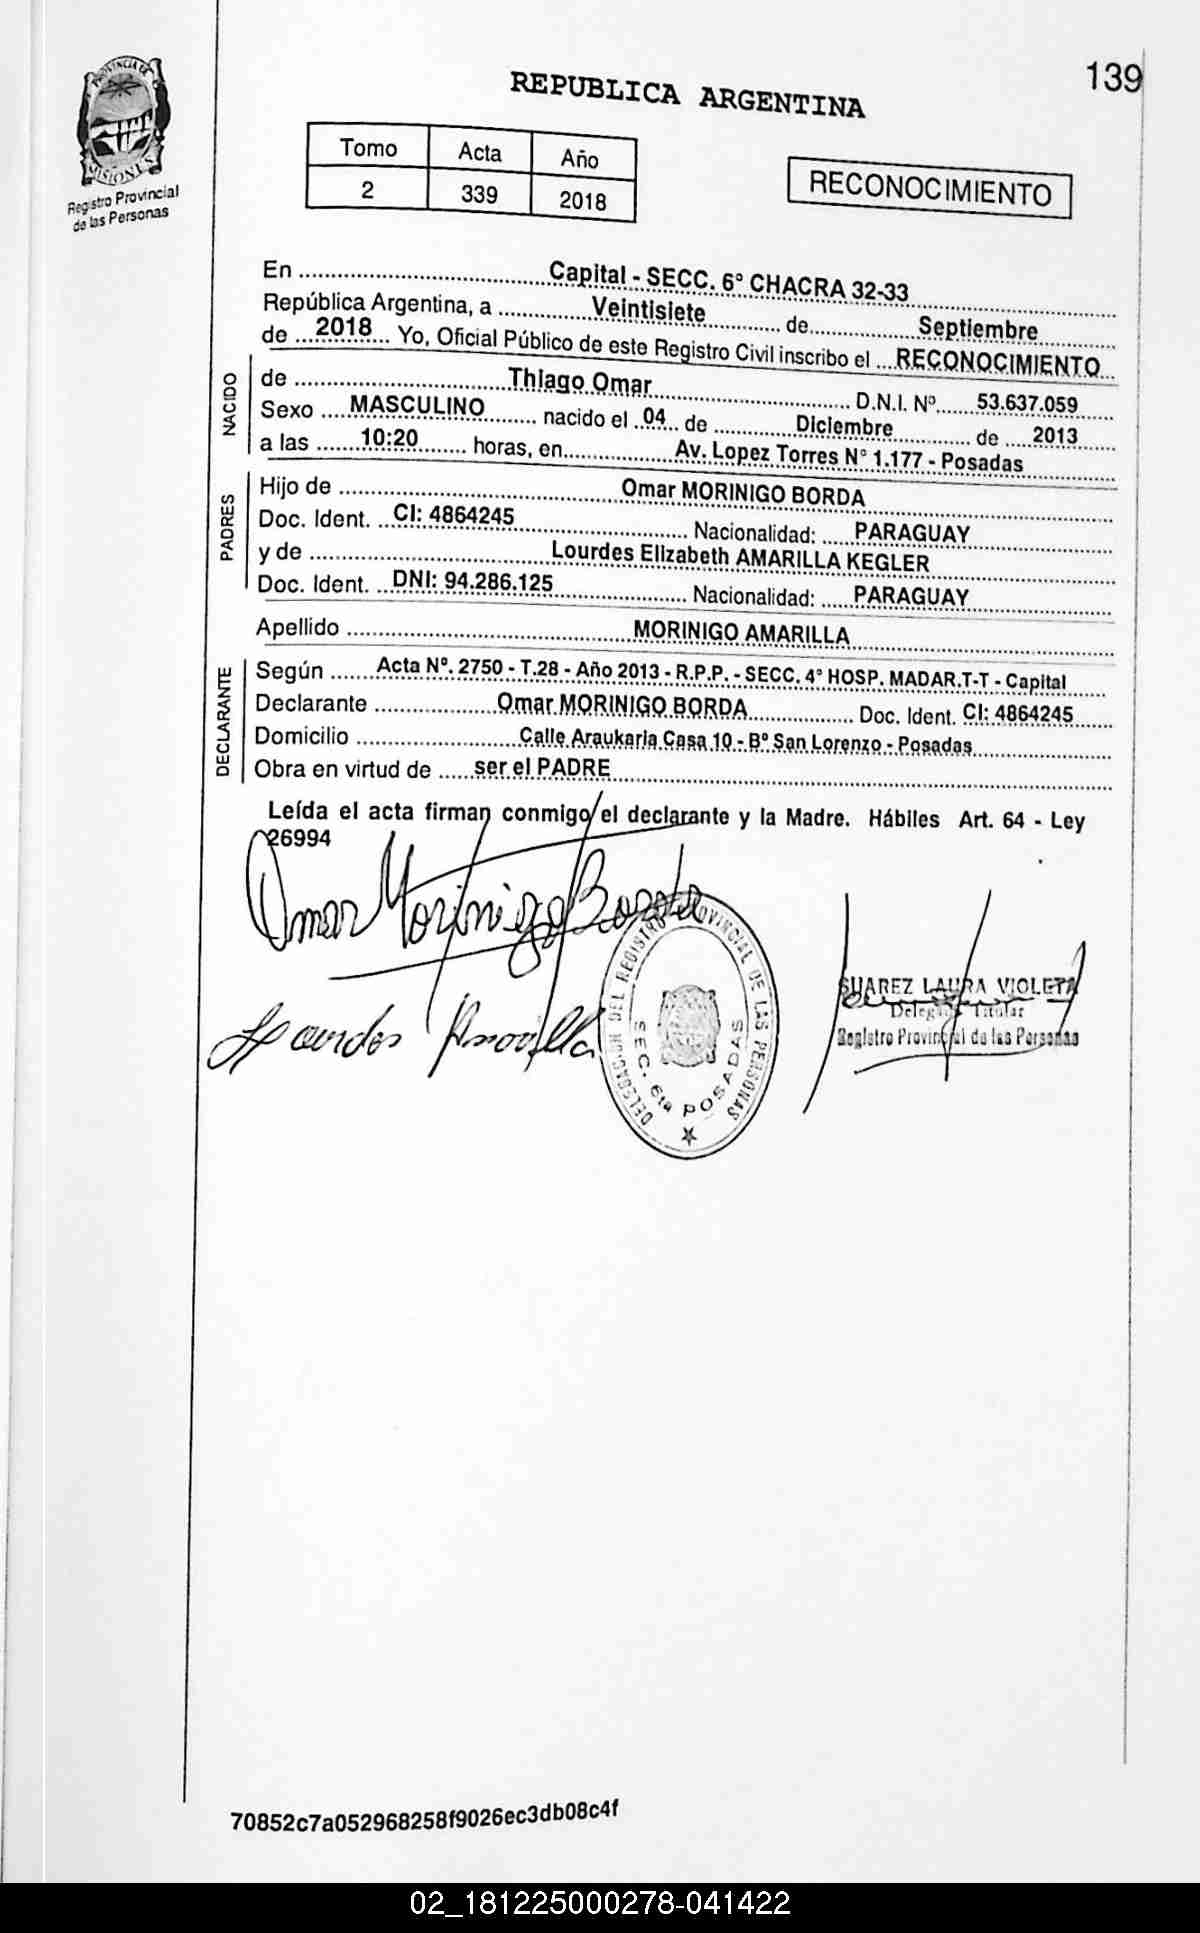 139
PROVINCIA DE
MISIONES
Registro Provincial
de las Personas
REPUBLICA ARGENTINA
Tomo Acta Año
2 339 2018
RECONOCIMIENTO
En Capital - SECC. 6º CHACRA 32-33
República Argentina, a Veintisiete de Septiembre
de 2018 Yo, Oficial Público de este Registro Civil inscribo el RECONOCIMIENTO
NACIDO
de Thiago Omar D.N.I. Nº 53.637.059
Sexo MASCULINO nacido el 04 de Diciembre de 2013
a las 10:20 horas, en Av. Lopez Torres N° 1.177 - Posadas
PADRES
Hijo de Omar MORINIGO BORDA
Doc. Ident. CI: 4864245 Nacionalidad: PARAGUAY
y de Lourdes Elizabeth AMARILLA KEGLER
Doc. Ident. DNI: 94.286.125 Nacionalidad: PARAGUAY
Apellido MORINIGO AMARILLA
DECLARANTE
Según Acta Nº. 2750 - T.28 - Año 2013 - R.P.P. - SECC. 4° HOSP. MADAR.T-T - Capital
Declarante Omar MORINIGO BORDA Doc. Ident. CI: 4864245
Domicilio Calle Araukaria Casa 10 - Bº San Lorenzo - Posadas
Obra en virtud de ser el PADRE
Leída el acta firman conmigo el declarante y la Madre. Hábiles Art. 64 - Ley
26994
Omar Morinigo Borda
Lourdes Amarilla
DELEGACION DEL REGISTRO PROVINCIAL DE LAS PERSONAS
SEC. 6ta POSADAS
SUAREZ LAURA VIOLETA
Delegada Titular
Registro Provincial de las Personas
70852c7a052968258f9026ec3db08c4f
02_181225000278-041422